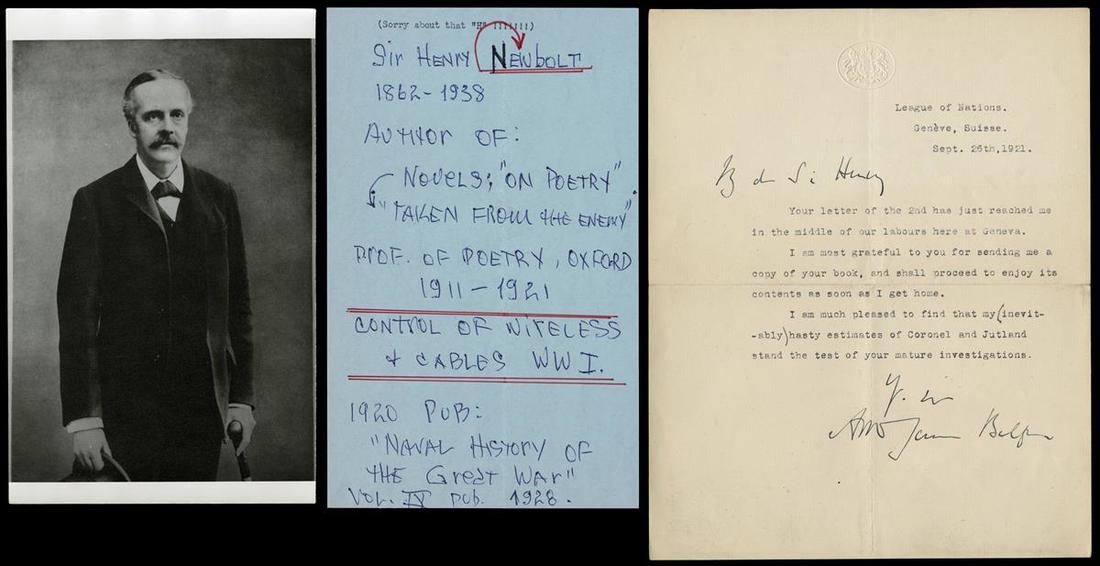 (Sorry about that "H" !!!!!!!)
Sir HENRY NEWbOLT
1862-1938
AUTHOR OF:
NOVELS; "ON POETRY"
"TAKEN FROM THE ENEMY"
PROF. OF POETRY, OXFORD
1911-1921
CONTROL OF WIRELESS
& CABLES WW I.
1920 PUB:
"NAVAL HISTORY OF
THE Great WAR"
VOL. IV pub. 1928.
League of Nations.
Genève, Suisse.
Sept. 26th, 1921.
My dear Sir Henry
Your letter of the 2nd has just reached me
in the middle of our labours here at Geneva.
I am most grateful to you for sending me a
copy of your book, and shall proceed to enjoy its
contents as soon as I get home.
I am much pleased to find that my (inevit-
-ably) hasty estimates of Coronel and Jutland
stand the test of your mature investigations.
Arthur James Balfour